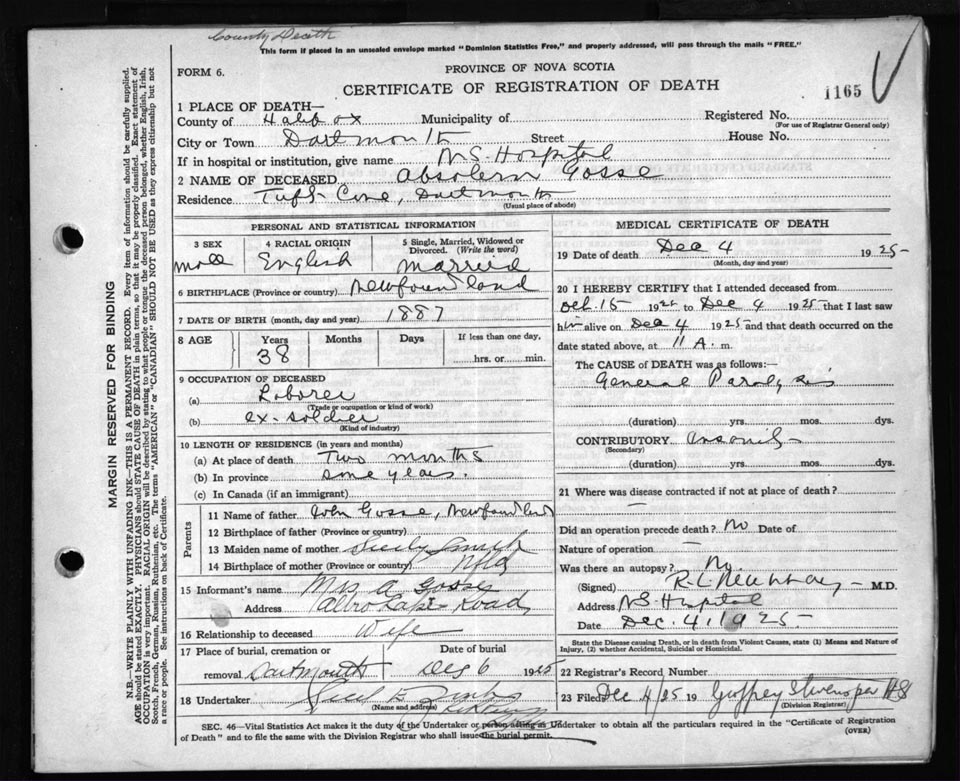 County Death
This form if placed in an unsealed envelope marked "Dominion Statistics Free," and properly addressed, will pass through the mails "FREE."
FORM 6.
PROVINCE OF NOVA SCOTIA
CERTIFICATE OF REGISTRATION OF DEATH
1165
1 PLACE OF DEATH—
County of Halifax Municipality of Registered No.
(For use of Registrar General only)
City or Town Dartmouth Street House No.
If in hospital or institution, give name N.S. Hospital
2 NAME OF DECEASED Absolem Gosse
Residence Tufts Cove, Dartmouth
(Usual place of abode)
PERSONAL AND STATISTICAL INFORMATION
3 SEX 4 RACIAL ORIGIN 5 Single, Married, Widowed or Divorced. (Write the word)
male English Married
6 BIRTHPLACE (Province or country) Newfoundland
7 DATE OF BIRTH (month, day and year) 1887
8 AGE Years Months Days If less than one day,
38 hrs. or min.
9 OCCUPATION OF DECEASED
(a) Laborer
(Trade or occupation or kind of work)
(b) ex-soldier
(Kind of industry)
10 LENGTH OF RESIDENCE (in years and months)
(a) At place of death Two months
(b) In province some years.
(c) In Canada (if an immigrant)
Parents
11 Name of father John Gosse, Newfoundland
12 Birthplace of father (Province or country)
13 Maiden name of mother Smith
14 Birthplace of mother (Province or country) Nfld
15 Informant's name Mrs A Gosse
Address Albro Lake Road
16 Relationship to deceased Wife
17 Place of burial, cremation or removal Dartmouth
Date of burial Dec 6 1925
18 Undertaker
(Name and address)
MEDICAL CERTIFICATE OF DEATH
19 Date of death Dec 4 1925
(Month, day and year)
20 I HEREBY CERTIFY that I attended deceased from
Oct. 15 192 to Dec 4 1925 that I last saw
him alive on Dec 4 1925 and that death occurred on
date stated above, at 11 A. m.
The CAUSE OF DEATH was as follows:—
General Paralysis
(duration) yrs. mos. dys.
CONTRIBUTORY Insanity
(Secondary)
(duration) yrs. mos. dys.
21 Where was disease contracted if not at place of death?
—
Did an operation precede death? No Date of
Nature of operation —
Was there an autopsy? No.
(Signed) R.L. M.D.
Address N.S. Hospital
Date Dec. 4, 1925
State the Disease causing Death, or in death from Violent Causes, state (1) Means and Nature of Injury, (2) whether Accidental, Suicidal or Homicidal.
22 Registrar's Record Number
23 Filed Dec 4/25 19
(Division Registrar)
SEC. 46—Vital Statistics Act makes it the duty of the Undertaker or person acting as Undertaker to obtain all the particulars required in the "Certificate of Registration
of Death" and to file the same with the Division Registrar who shall issue the burial permit.
(OVER)
MARGIN RESERVED FOR BINDING
N.B.—WRITE PLAINLY WITH UNFADING INK—THIS IS A PERMANENT RECORD. Every item of information should be carefully supplied.
AGE should be stated EXACTLY. PHYSICIANS should STATE CAUSE OF DEATH in plain terms, so that it may be properly classified. Exact statement of
OCCUPATION is very important. RACIAL ORIGIN will be described by stating to what people or tongue the deceased person belonged, whether English, Irish,
Scotch, French, German, Russian, Ruthenian, etc. The terms "AMERICAN" or "CANADIAN" SHOULD NOT BE USED as they express citizenship but not
a race or people. See instructions on back of Certificate.